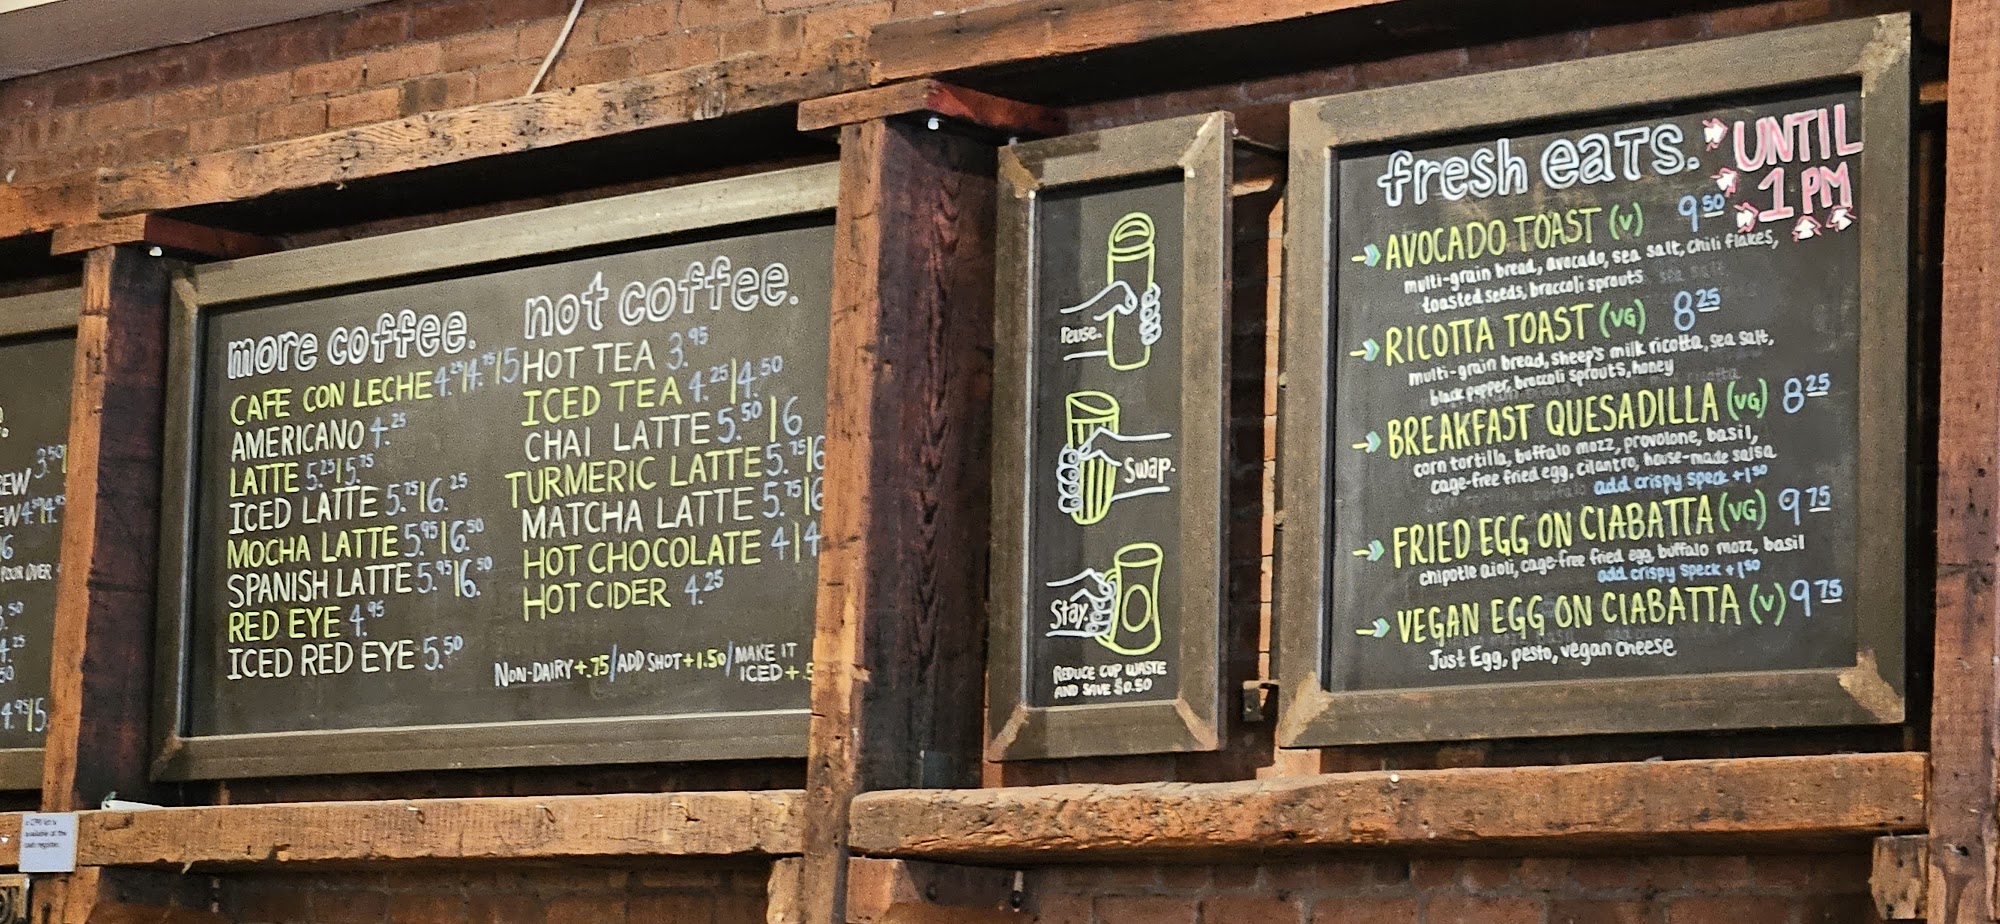 3.50
EW
EW 4.50 4.95
POUR OVER
4.95/5.
more coffee.
CAFE CON LECHE 4.25|4.75|5
AMERICANO 4.25
LATTE 5.25|5.75
ICED LATTE 5.75|6.25
MOCHA LATTE 5.95|6.50
SPANISH LATTE 5.95|6.50
RED EYE 4.95
ICED RED EYE 5.50
not coffee.
HOT TEA 3.95
ICED TEA 4.25|4.50
CHAI LATTE 5.50|6
TURMERIC LATTE 5.75|6
MATCHA LATTE 5.75|6
HOT CHOCOLATE 4|4
HOT CIDER 4.25
NON-DAIRY +.75/ADD SHOT +1.50/MAKE IT
ICED +.5
Reuse.
Swap.
Stay.
REDUCE CUP WASTE
AND SAVE $0.50
fresh eats.
UNTIL
1 PM
AVOCADO TOAST (V) 9.50
multi-grain bread, avocado, sea salt, chili flakes,
toasted seeds, broccoli sprouts
RICOTTA TOAST (VG) 8.25
multi-grain bread, sheep's milk ricotta, sea salt,
black pepper, broccoli sprouts, honey
BREAKFAST QUESADILLA (VG) 8.25
corn tortilla, buffalo mozz, provolone, basil,
cage-free fried egg, cilantro, house-made salsa
add crispy speck +1.50
FRIED EGG ON CIABATTA (VG) 9.75
chipotle aioli, cage-free fried egg, buffalo mozz, basil
add crispy speck +1.50
VEGAN EGG ON CIABATTA (V) 9.75
Just Egg, pesto, vegan cheese